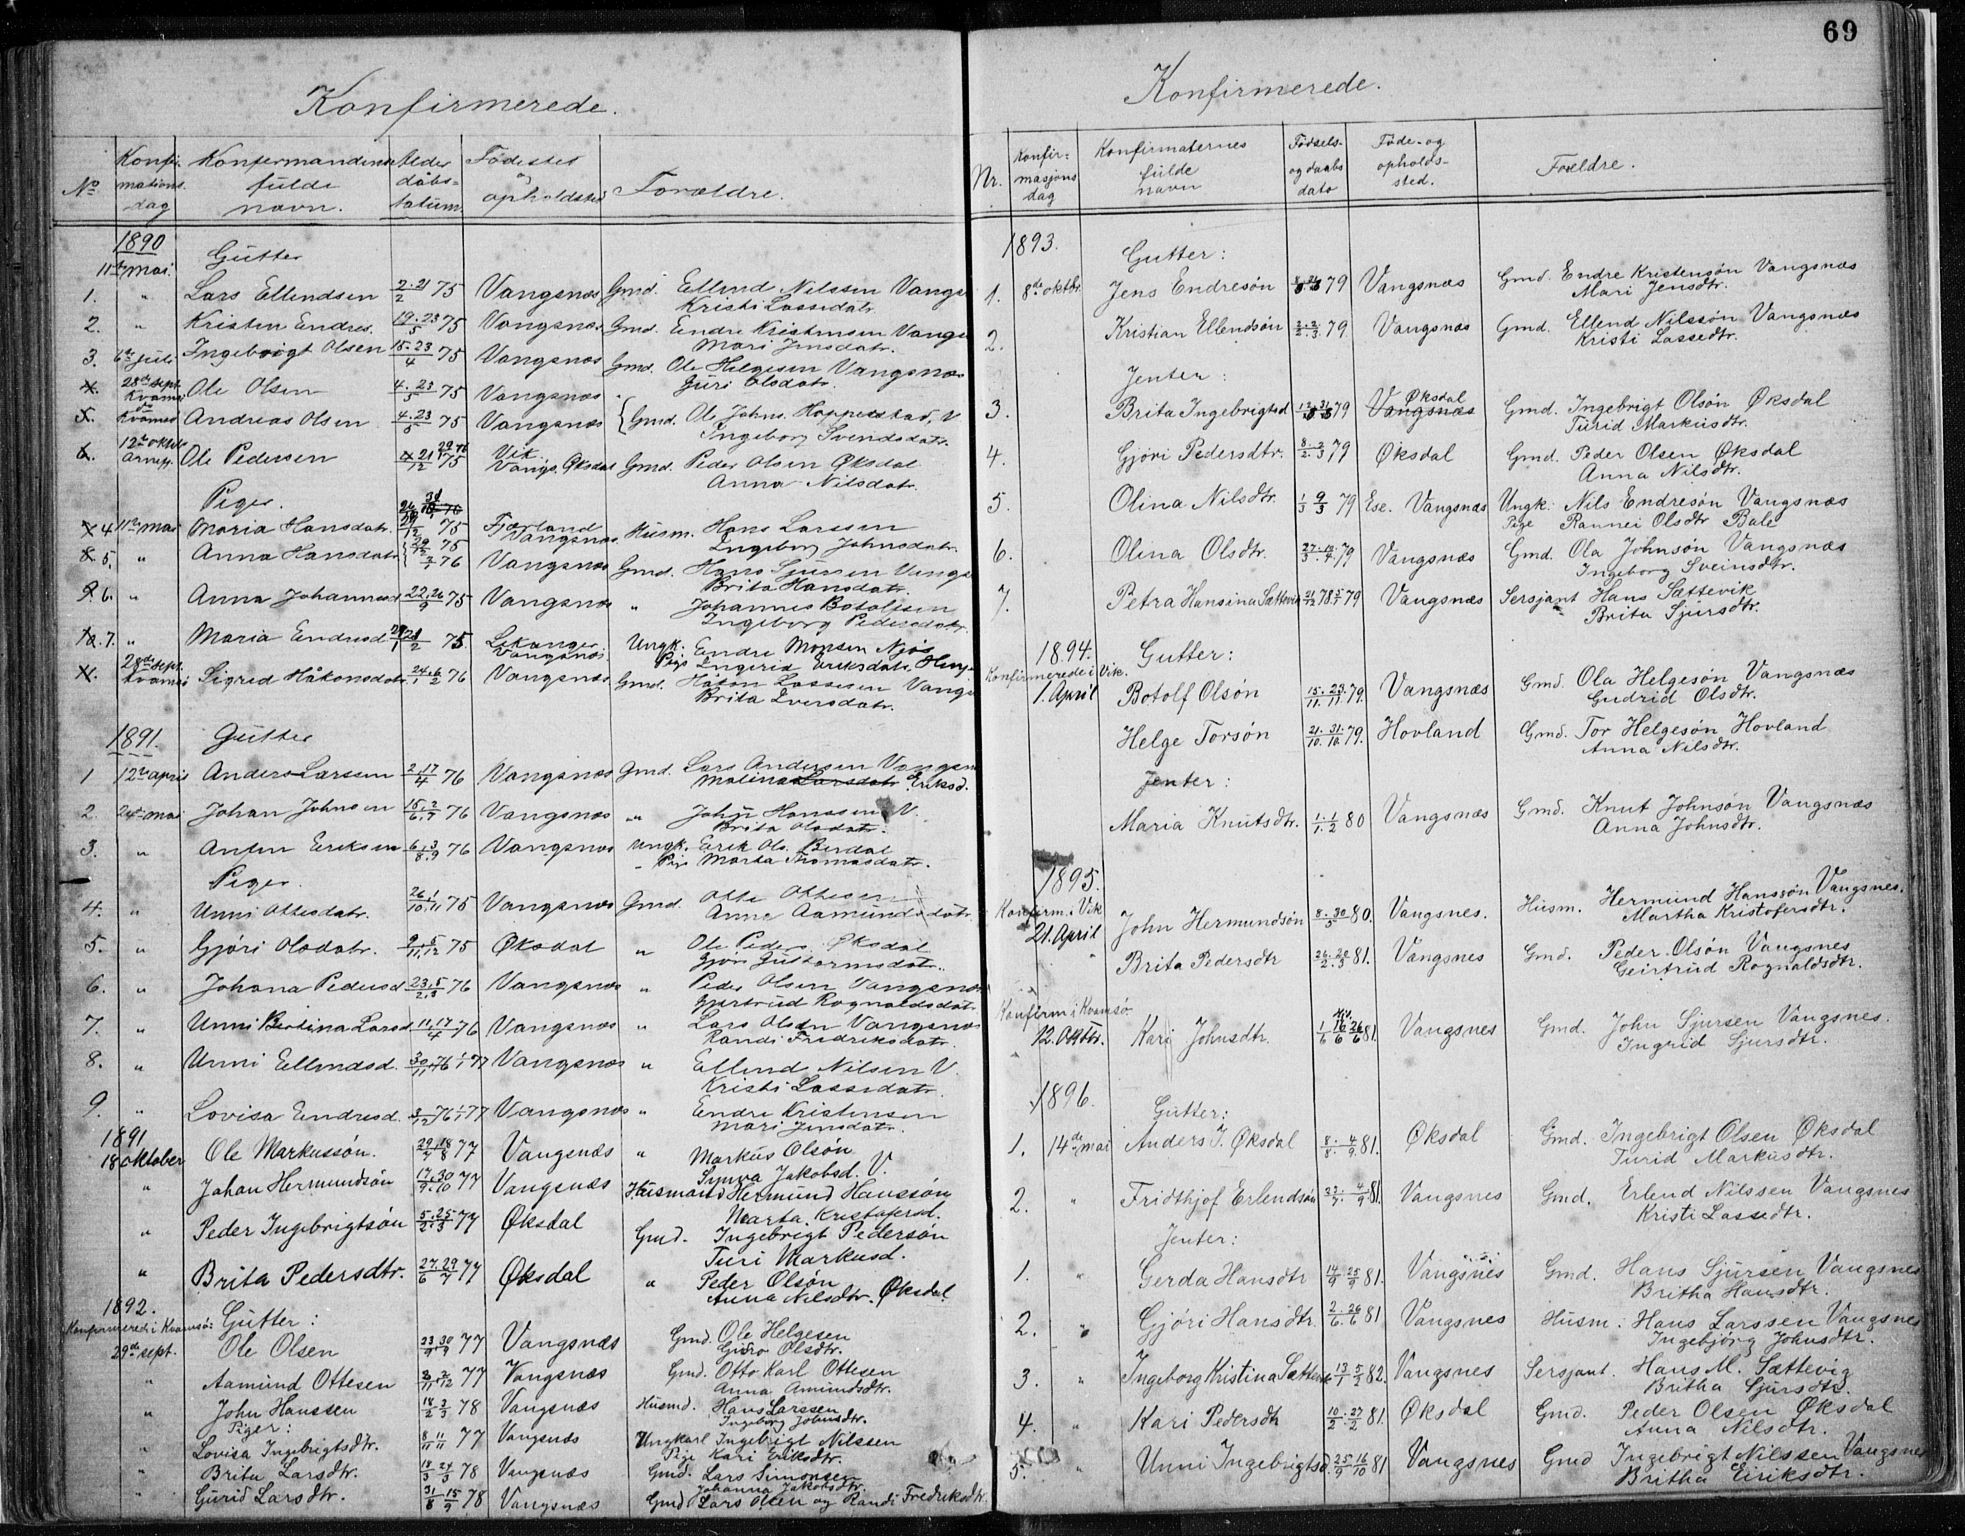 Konfirmerede.
No Konfirmations dag Konfermandens fulde navn. Alder dåbsdatum Fødested og opholdsted Forældre.
1890 Gutter
11te mai.
1. " Lars Ellendsen 2.21/2 75 Vangsnæs Gmd. Ellend Nilssen
Kristi Lassedatr
2. " Kristen Endres. 19.23/5 75 Vangsnæs Gmd. Endre Kristensen
Mari Jensdatr.
3. 6te juli Ingebrigt Olsen 15.23/4 75 Vangsnæs Gmd. Ole Helgesen Vangsnæs
Guri Olsdatr.
28de sept. Kvamsø Ole Olsen 4.23/5 75 Vangsnæs
Kvamsø Andreas Olsen 4.23/5 75 Vangsnæs Gmd. Ole Johns. Hoppestad, V
Ingeborg Svendsdatr.
12te oktbr Arnefj. Ole Pedersen 21/12 75 Vik Vangs. Øksdal Gmd. Peder Olsen Øksdal
Anna Nilsdatr.
Piger.
4 11te mai Maria Hansdatr. 29/12 75 Fjærland Vangsnæs Husm. Hans Larssen
Ingeborg Johnsdatr.
5. " Anna Hansdatr 75 76 Vangsnæs Gmd. Hans Sjursen
Brita Hansdatr.
6. " Anna Johannesd 22.26/9 75 Vangsnæs " Johannes Botolfsen
Ingeborg Pedersdatr.
7. " Maria Endresd 75 Lekanger Vangsnæs Ungk. Endre Monsen Njøs
Pige Ingerid Eriksdatr.
28de sept. Kvamsø Sigrid Håkonsdatr 24.6/1 2 76 Vangsnæs Gmd. Håkon Lassesen
Brita Iversdatr.
1891. Gutter
1 12te april Anders Larssen 2.17/4 76 Vangsnæs Gmd. Lars Andersen
Malina Larsdatr Eriksd.
2. 24de mai Johan Johnsen 15.2/6.7 76 Vangsnæs " John Hanssen V.
Brita Olsdatr.
3. " Anfin Eriksen 6.3/8.9 76 Vangsnæs Ungk. Erik Ols. Berdal
Pige Marta Thomasdatr.
Piger.
4. " Unni Ottesdatr. 26.1/10.11 75 Vangsnæs Gmd. Otte Ottesen
Anna Aamundsdatr.
5. " Gjøri Olsdatr. 9.5/11.12 75 Øksdal " Ole Peders. Øksdal
Gjøri Guttormsdatr.
6. " Johana Pedersd 23.5/2.3 76 Vangsnæs " Peder Olsen Vangsnæs
Gjertrud Rognaldsdatr
7. " Unni Bertina Larsd 11.17/4 76 Vangsnæs " Lars Olsen Vangsnæs
Randi Fredriksdatr.
8. " Unni Ellendsd. 30/11 76 1/1 77 Vangsnæs " Ellend Nilsen V.
Kristi Lassedatr
9. " Lovisa Endresd. 3/12 76 1/1 77 Vangsnæs " Endre Kristensen
Mari Jensdatr.
1891
18 oktober Ole Markussøn. 29.18/7 8 77 Vangsnæs " Markus Olsøn
Synva Jakobsd. V.
" Johan Hermundsøn 17.30/9.10 77 Vangsnæs Husmand Hermund Hanssøn
Marta Kristofersd.
" Peder Ingebrigtsøn 5.25/2.3 77 Øksdal Gmd. Ingebrigt Pedersøn
Turi Markusd.
" Brita Pedersdtr. 27.29/6 7 77 Øksdal " Peder Olsøn
Anna Nilsdtr. Øksdal.
1892. Gutter:
Konfirmered i Kvamsø:
29de sept. Ole Olsen 23.30/9 9 77 Vangsnæs Gmd. Ole Helgesen
Guro Olsdtr.
" Aamund Ottesen 3/11 2/12 77 Vangsnæs Gmd. Otto Karl Ottesen
Anna Amundsdtr.
" John Hanssen 18/2 3/3 78 Vangsnæs Husmd. Hans Larssen
Ingeborg Johnsdtr.
Piger:
" Lovisa Ingebrigtsdtr. 8/11 11/11 77 Vangsnæs Ungkarl Ingebrigt Nilssen
Pige Kari Eriksdtr.
" Brita Larsdtr. 18/3 24/3 78 Vangsnæs Gmd. Lars Simonsen
Johanna Jakobsdtr.
" Gurid Larsdtr. 31/8 15/9 78 Vangsnæs Gmd Lars Olsen og Randi Fredriksdtr.
69
Konfirmerede.
Nr. Konfirmasjons dag Konfirmaternes fulde navn Fødsels- og daabs dato Føde- og opholdssted. Forældre.
1893. Gutter:
1. 8de oktbr. Jens Endresøn 79 Vangsnæs Gmd. Endre Kristensøn Vangsnæs
Mari Jensdtr.
2. Kristian Ellendsøn 2.2/2.3 79 Vangsnæs Gmd. Ellend Nilssøn Vangsnæs
Kristi Lassedtr.
Jenter:
3. Brita Ingebrigtsd 79 Vangsnæs Øksdal Gmd. Ingebrigt Olsøn Øksdal
Turid Markusdtr.
4. Gjøri Pedersdtr. 8.2/2.3 79 Øksdal Gmd. Peder Olsen Øksdal
Anna Nilsdtr.
5. Olina Nilsdtr. 1/3 9/3 79 Ese. Vangsnæs Ungk: Nils Endresøn Vangsnæs
Pige Rannei Olsdtr Bale
6. Olina Olsdtr. 27.14/3.4 79 Vangsnæs Gmd. Ola Johnsøn Vangsnæs
Ingeborg Sveinsdtr.
7. Petra Hansina Sættevik 21/12 78 79 Vangsnæs Sersjant Hans Sættevik
Brita Sjursdtr.
1894. Gutter:
Konfirmerede i Vik.
1. April Botolf Olsøn 15.23/11.11 79. Vangsnæs Gmd. Ola Helgesøn Vangsnæs
Gudrid Olsdtr.
Helge Torsøn 21.31/10.10 79. Hovland Gmd. Tor Helgesøn Hovland
Anna Nilsdtr.
Jenter:
Maria Knutsdtr. 1.1/1.2 80 Vangsnæs Gmd. Knut Johnsøn Vangsnæs
Anna Johnsdtr.
1895.
Konfirm. i Vik
21. April John Hermundsøn 8.30/5 80. Vangsnes. Husm. Hermund Hanssøn Vangsnes.
Martha Kristofersdtr.
" Brita Pedersdtr 26.20/2.3 81. Vangsnes Gmd. Peder Olsøn Vangsnes
Geirtrud Rognaldsdtr.
Konfirm i Kvamsø
12. Oktbr. Kari Johnsdtr. 1/6 16/6 26/6 81. Vangsnes Gmd. John Sjursen Vangsnes.
Ingrid Sjursdtr.
1896. Gutter:
1. 14de mai Anders I. Øksdal 8.4/8.9 81. Øksdal Gmd. Ingebrigt Olsen Øksdal
Turid Markusdtr.
2. " Fridthjof Erlendsøn 4/9 81. Vangsnes Gmd. Erlend Nilssen Vangsnes
Kristi Lassedtr.
Jenter:
1. " Gerda Hansdtr 14/9 25/9 81. Vangsnes Gmd. Hans Sjursen Vangsnes
Britha Hansdtr.
2. " Gjøri Hansdtr. 2.26/6.6 81 Vangsnes Husm. Hans Larssen Vangsnes
Ingebjørg Johnsdtr.
3. " Ingeborg Kristina Sættevik 13/1 5/2 82. Vangsnes Sersjant. Hans M. Sættevig
Britha Sjursdtr.
4. " Kari Pedersdtr 10/2 27/2 81. Øksdal Gmd. Peder Olsen Øksdal
Anna Nilsdtr.
5. " Unni Ingebrigtsd. 25/9 16/10 81 Vangsnes Gmd Ingebrigt Nilssen Vangsnes
Britha Eiriksdtr.